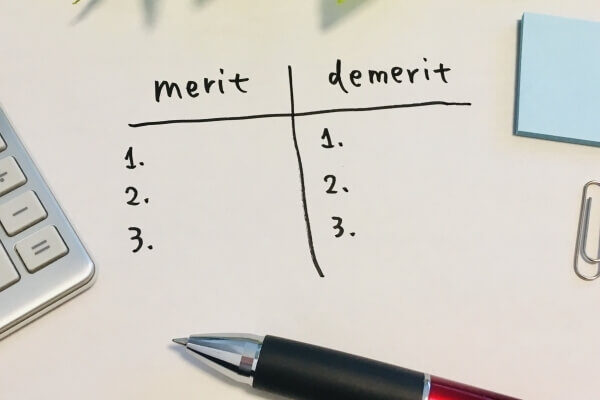 merit demerit
1. 1.
2. 2.
3. 3.
÷
−
=